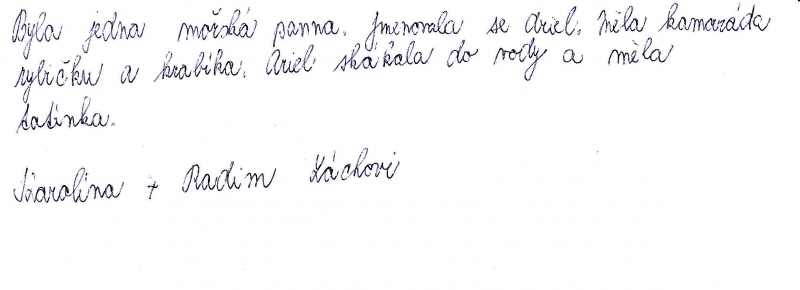 Byla jedna mořská panna. Jmenovala se Ariel. Měla kamaráda
rybičku a krabíka. Ariel skákala do vody a měla
tatínka.
Karolína + Radim Láchovi